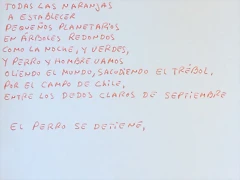 TODAS LAS NARANJAS
A ESTABLECER
PEQUEÑOS PLANETARIOS
EN ÁRBOLES REDONDOS
COMO LA NOCHE, Y VERDES,
Y PERRO Y HOMBRE VAMOS
OLIENDO EL MUNDO, SACUDIENDO EL TRÉBOL,
POR EL CAMPO DE CHILE,
ENTRE LOS DEDOS CLAROS DE SEPTIEMBRE
EL PERRO SE DETIENE,